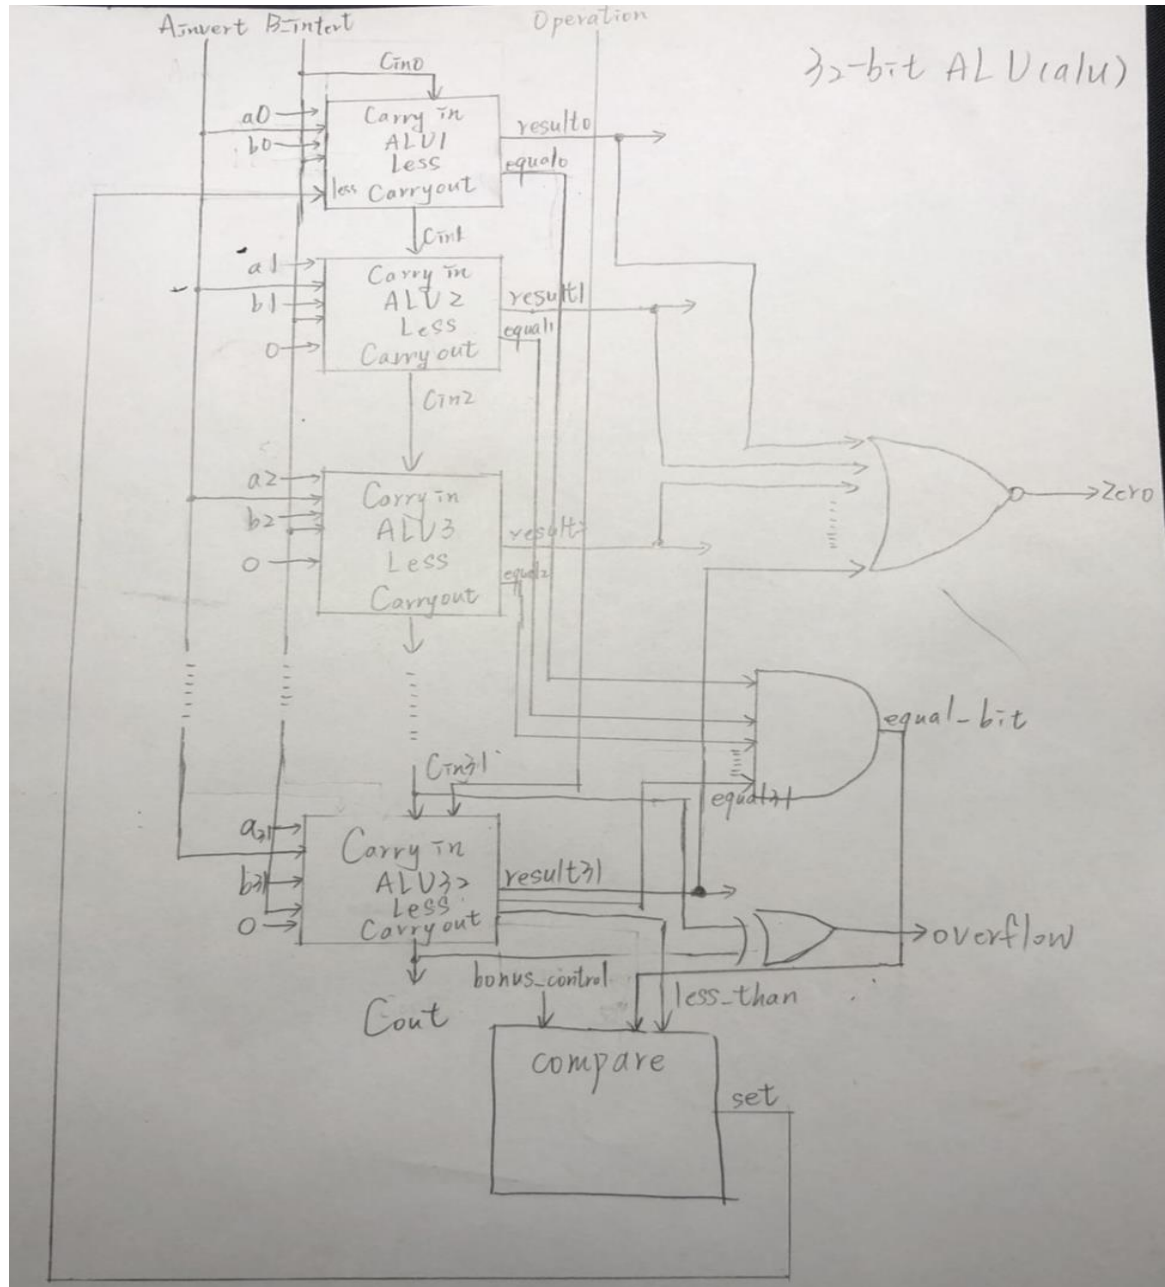 Ainvert B-intert Operation
32-bit ALU(alu)
Cin0
a0
b0
less
Carry in
ALU1
Less
Carryout
result0
equal0
Cin1
a1
b1
0
Carry in
ALU2
Less
Carryout
result1
equal1
Cin2
a2
b2
0
Carry in
ALU3
Less
Carryout
result2
equal2
Zero
equal-bit
equal31
Cin31
a31
b31
0
Carry in
ALU32
Less
Carryout
result31
overflow
Cout
bonus_control
less_than
compare
set